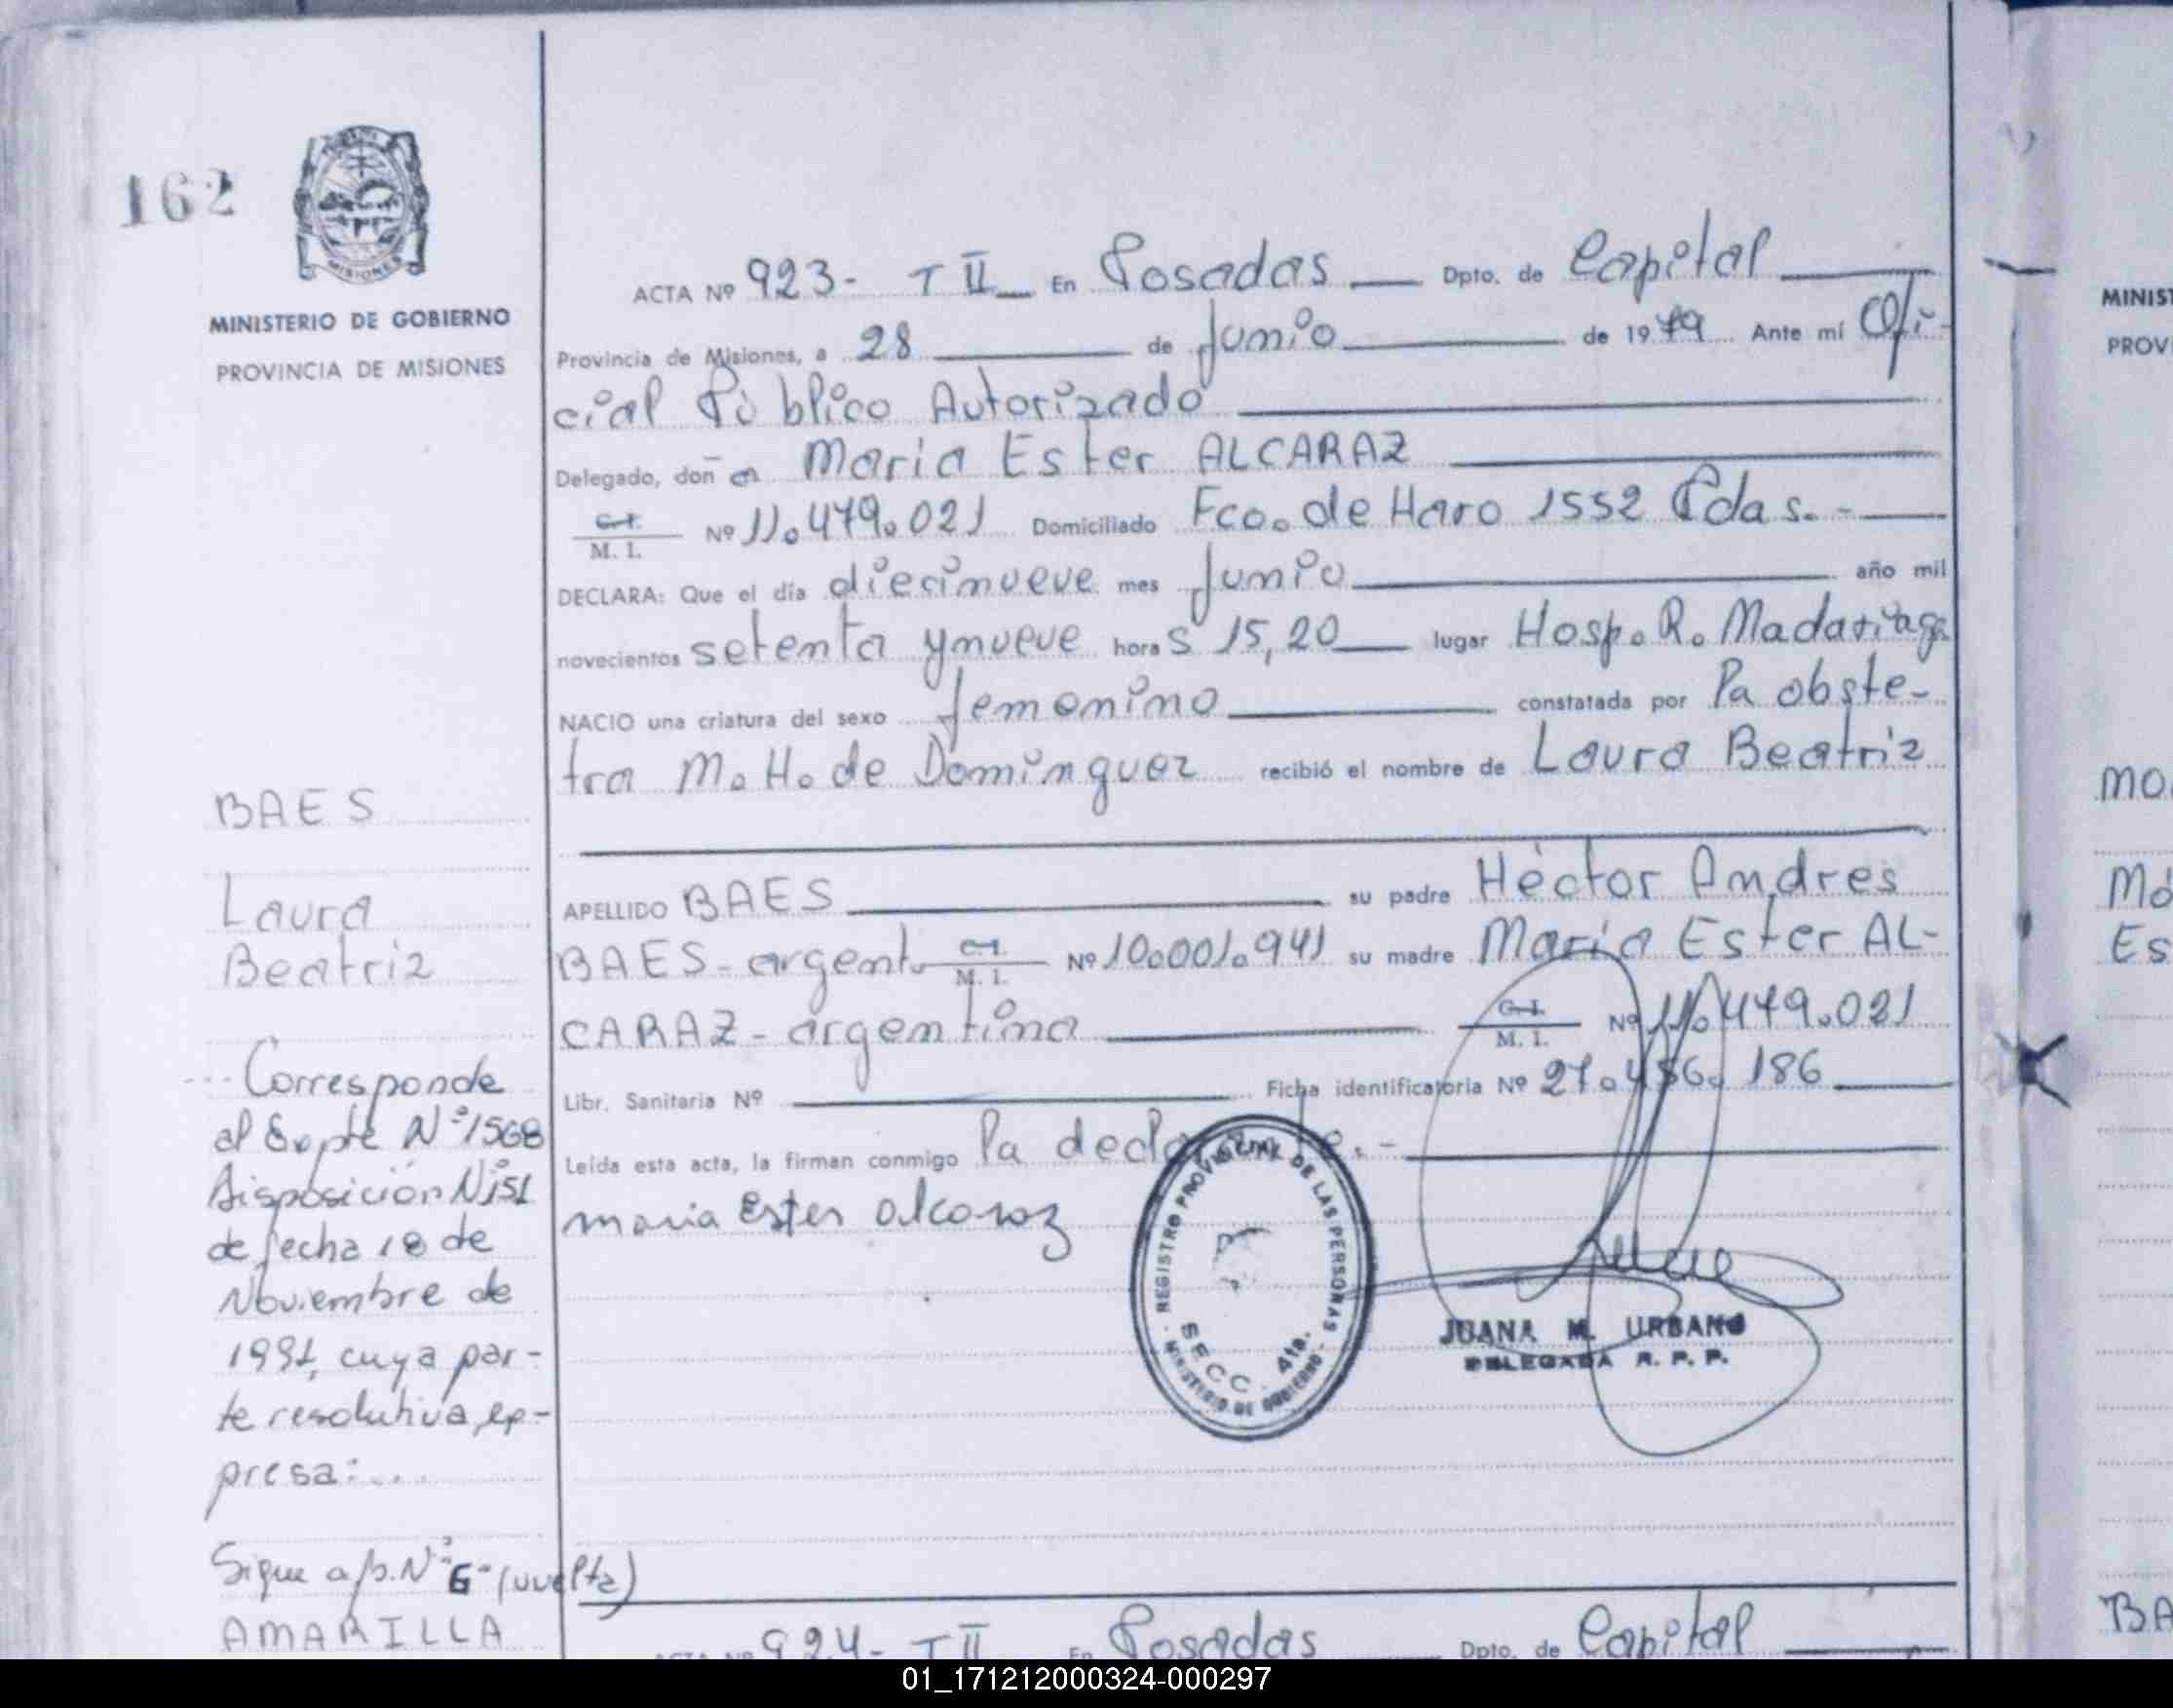 162
MISIONES
MINISTERIO DE GOBIERNO
PROVINCIA DE MISIONES
ACTA Nº 923- T II En Posadas Dpto. de Capital
Provincia de Misiones, a 28 de Junio de 1979 Ante mí Ofi-
cial Público Autorizado
Delegado, doña Maria Ester ALCARAZ
C.I. M. I. Nº 11.479.021 Domiciliado Fco. de Haro 1552 Pdas.-
DECLARA: Que el día diecinueve mes Junio año mil
novecientos setenta y nueve horas 15,20 lugar Hosp. R. Madariaga
NACIO una criatura del sexo femenino constatada por la obste-
tra M. H. de Dominguez recibió el nombre de Laura Beatriz
APELLIDO BAES su padre Héctor Andres
BAES-argent. C.I. M. I. Nº 10.001.941 su madre Maria Ester AL-
CARAZ-argentina C.I. M. I. Nº 11.479.021
Libr. Sanitaria Nº Ficha identificatoria Nº 27.456.186
Leída esta acta, la firman conmigo la declarante.-
maria Ester alcaraz
REGISTRO PROVINCIAL DE LAS PERSONAS
SECC. 4ta.
MINISTERIO DE GOBIERNO
JUANA M. URBANO
DELEGADA R. P. P.
BAES
Laura
Beatriz
... Corresponde
al Expte Nº 1568
Disposición Nº 151
de fecha 18 de
Noviembre de
1991, cuya par-
te resolutiva, ex-
presa:...
Sigue a fs. Nº 6- (vuelta)
AMARILLA
ACTA Nº 924- T II En Posadas Dpto. de Capital
MINIST
PROV
MO
Mó
Es
BA
01_171212000324-000297